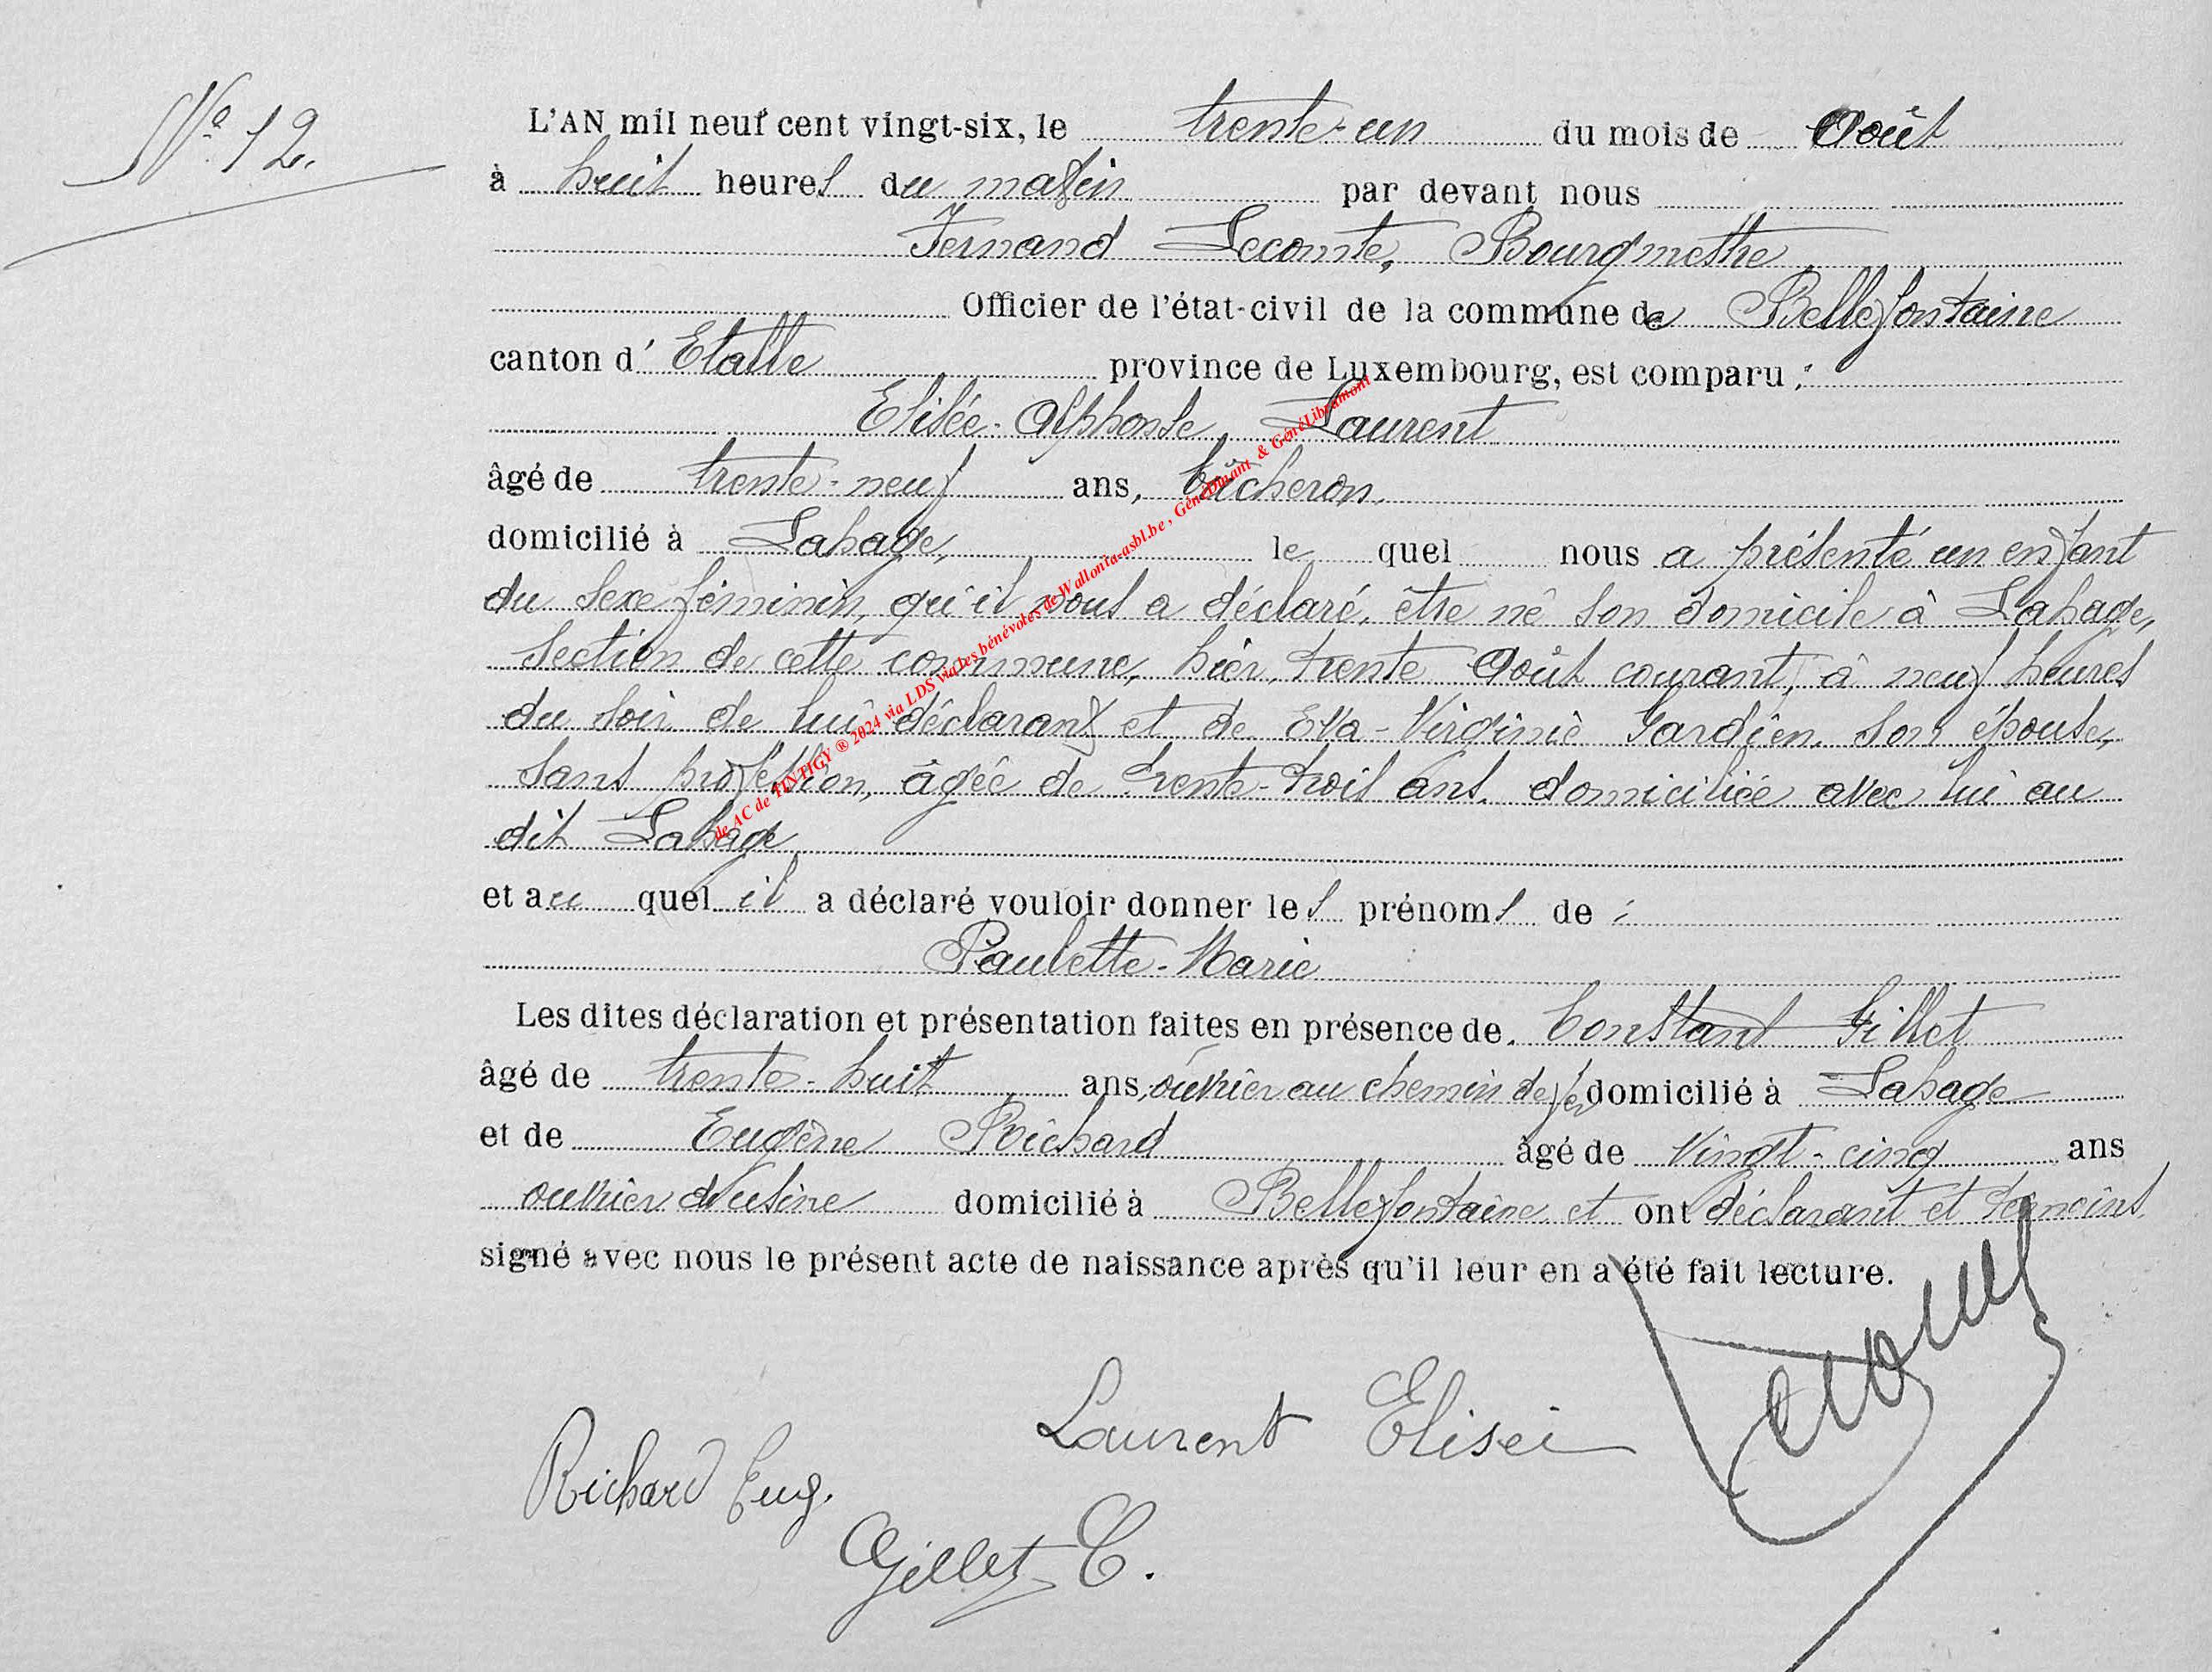 N° 12.
L'AN mil neuf cent vingt-six, le trente-un du mois de Août
à huit heures du matin par devant nous
Fernand Lecomte, Bourgmestre
Officier de l'état-civil de la commune de Bellefontaine
canton d' Etalle province de Luxembourg, est comparu :
Elisée-Alphonse Laurent
âgé de trente-neuf ans, bûcheron,
domicilié à Lahage, le quel nous a présenté un enfant
du sexe féminin, qu'il nous a déclaré, être né son domicile à Lahage,
section de cette commune, hier, trente Août courant, à neuf heures
du soir, de lui déclarant et de Eva-Virginie Gardien, son épouse,
sans profession, âgée de trente-trois ans, domiciliée avec lui au
dit Lahage
et au quel il a déclaré vouloir donner les prénoms de :
Paulette-Marie
Les dites déclaration et présentation faites en présence de Constant Gillet
âgé de trente-huit ans, ouvrier au chemin de fer domicilié à Lahage
et de Eugène Richard âgé de vingt-cinq ans
ouvrier d'usine domicilié à Bellefontaine et ont déclarant et témoins
signé avec nous le présent acte de naissance après qu'il leur en a été fait lecture.
Laurent Elisée
Richard Eug.
Gillet C.
de AC de TINTIGY ® 2024 via LDS via les bénévoles de Wallonia-asbl.be , GénéDinant & GénéLibramont